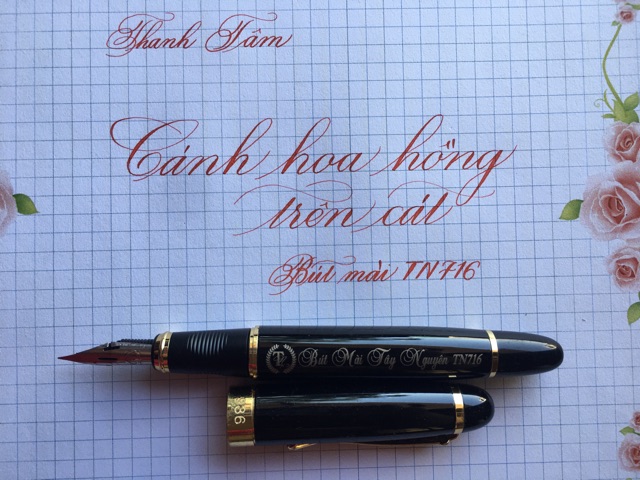 Thanh Tâm
Cánh hoa hồng
trên cát
Bút mài TN716
Bút Mài Tây Nguyên TN716